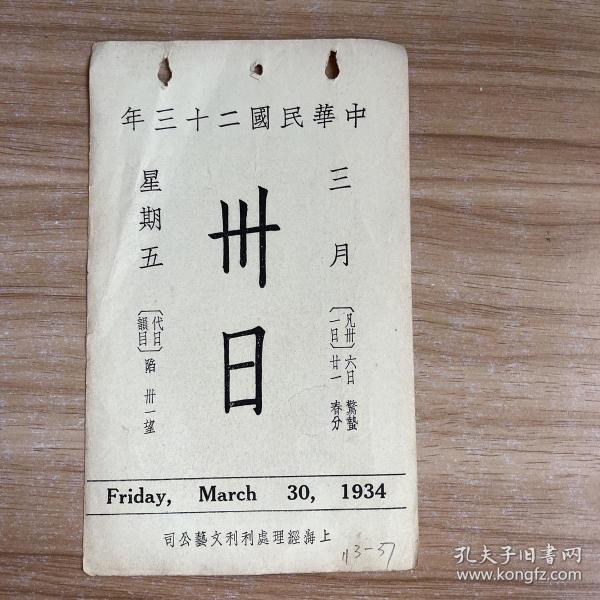 中華民國二十三年
三月
〔凡卅一日〕
六日 驚蟄
廿一 春分
卅日
星期五
〔代日韻目〕
陷 卅一望
Friday, March 30, 1934
上海經理處利利文藝公司
113-37
孔夫子旧书网
www.kongfz.com